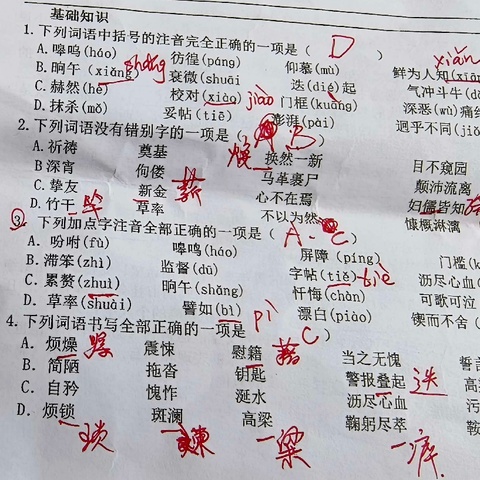 基础知识
1.下列词语中括号的注音完全正确的一项是( D )
A.嗥鸣(háo) 彷徨(páng) 仰慕(mù) 鲜为人知(xiān xiǎn
B.晌午(xiǎng) shǎng 衰微(shuāi 迭(dié)起 气冲斗牛(d
C.赫然(hè) 校对(xiào) jiào 门框(kuāng) 深恶(wù)痛纟
D.抹杀(mǒ) 妥帖(tiē) 澎湃(pài) 迥乎不同(jiǒ
2.下列词语没有错别字的一项是( B )
A.祈祷 奠基 焕 换然一新 目不窥园
B 深宵 佝偻 马革裹尸 颠沛流离
C.挚友 新金 薪 心不在焉 妇儒皆知
D.竹干 竿 草率 不以为然 慷概淋漓
3.下列加点字注音全部正确的一项是( A. C )
A.吩咐(fù) 嗥鸣(háo) 屏障(píng) 门槛(k
B.滞笨(zhì) 监督(dū) 字帖(tiě) tiè 沥尽心血
C.累赘(zhuì) 晌午(shǎng) 忏悔(chàn) 可歌可泣
D.草率(shuài) 譬如(bì) pì 漂白(piào) 锲而不舍(
4.下列词语书写全部正确的一项是( C )
A.烦燥 躁 震悚 慰籍 藉 当之无愧 誓言
B.简陋 拖沓 钥匙 警报叠起 迭 高
C.自矜 愧怍 涎水 沥尽心血 污
D.烦锁 斑澜 高梁 鞠躬尽萃 鞍
琐 斓 粱 瘁